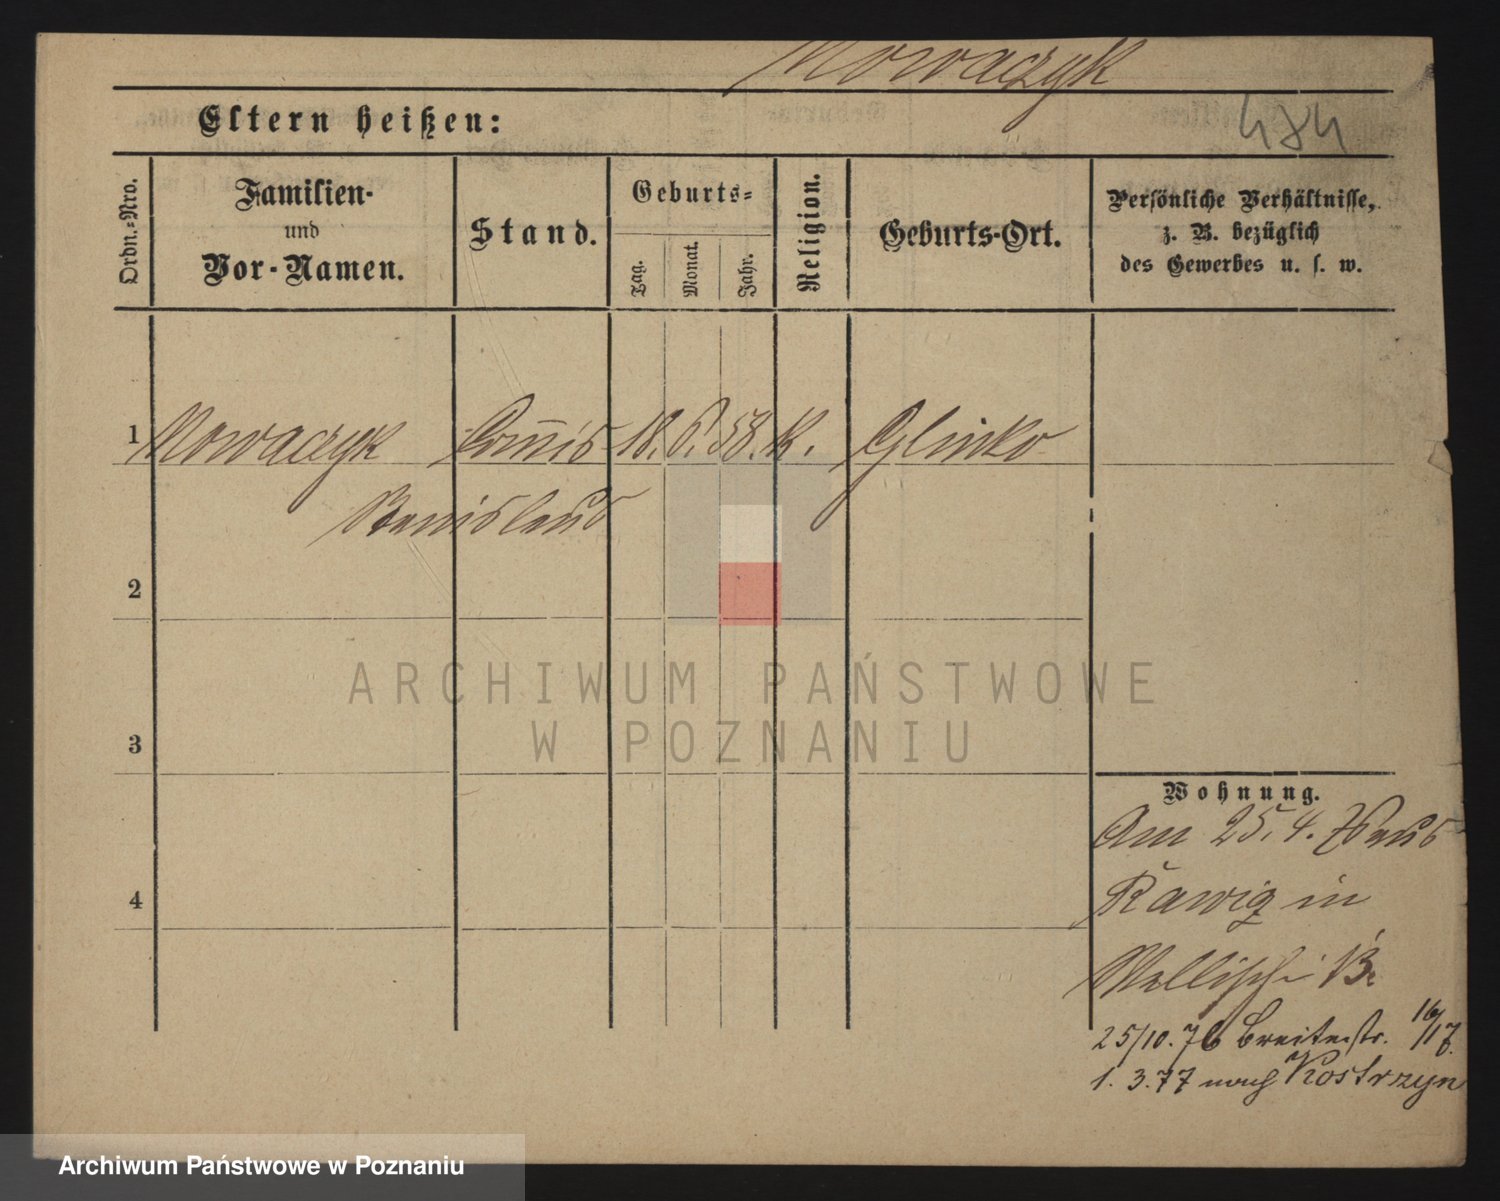 Nowaczyk
Eltern heißen:
484
Ordn.-Nro.
Familien-
und
Vor-Namen.
Stand.
Geburts-
Tag.
Monat.
Jahr.
Religion.
Geburts-Ort.
Persönliche Verhältnisse,
z. B. bezüglich
des Gewerbes u. s. w.
1 Nowaczyk Commis 18. 6. 58. K. Glinko
Stanislaus
2
ARCHIWUM PAŃSTWOWE
W POZNANIU
3
Wohnung.
Am 25. 4. 76 aus
4
Rawicz in
Wallischei
25/10. 76 Breitestr. 16/17.
1. 3. 77 nach Kostrzyn
Archiwum Państwowe w Poznaniu